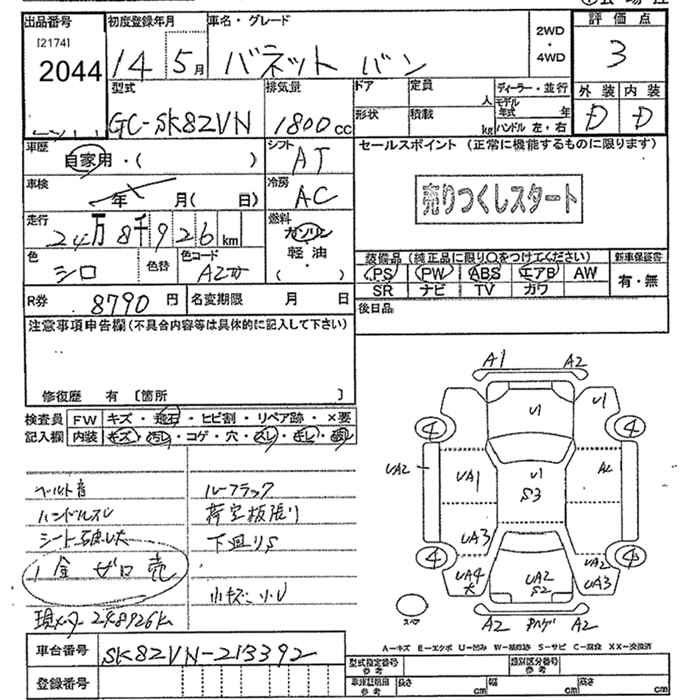 出品番号 初度登録年月 車名・グレード 評価点
[2174]
2044 14年5月 バネット バン 2WD・4WD 3
型式 排気量 ドア 定員 人 ディーラー・並行 外装 内装
GC-SK82VN 1800cc 形状 積載 kg モデル年式 年 ハンドル 左・右 D D
車歴 自家用・( ) シフト AT セールスポイント (正常に機能するものに限ります)
車検 年 月( 日) 冷房 AC 売りつくしスタート
走行 24万8千926km 燃料 ガソリン
軽油
( ・ )
色 シロ 色替 色コード 装備品 (純正品に限り○をつけてください) 新車保証書
PS PW ABS エアB AW 有・無
SR ナビ TV カワ
R券 8790円 名変期限 月 日 後日品
注意事項申告欄(不具合内容等は具体的に記入して下さい)
修復歴 有 〔箇所 〕
検査員 FW キズ・飛石・ヒビ割・リペア跡・×要
記入欄 内装 キズ・汚レ・コゲ・穴・スレ・キレ・
A1 A2
U1 U1
4 4
UA2 UA1 U1 S3 A2
UA3
4 4
UA4 UA2 S2 UA2 UA3
スペア A2 A2
ベルト音 ルーフラック
ハンドルスレ 荷室板張り
下廻りS
1金 ゼロ 売
小キズ・凹
現メーター 248926k
A=キズ E=エクボ U=凹み W=補修跡 S=サビ C=腐食 XX=交換済
車台番号 SK82VN-213392 型式指定番号 参考 類別区分番号 参考
登録番号 車庫証明用 参考 長さ cm 幅 cm 高さ cm